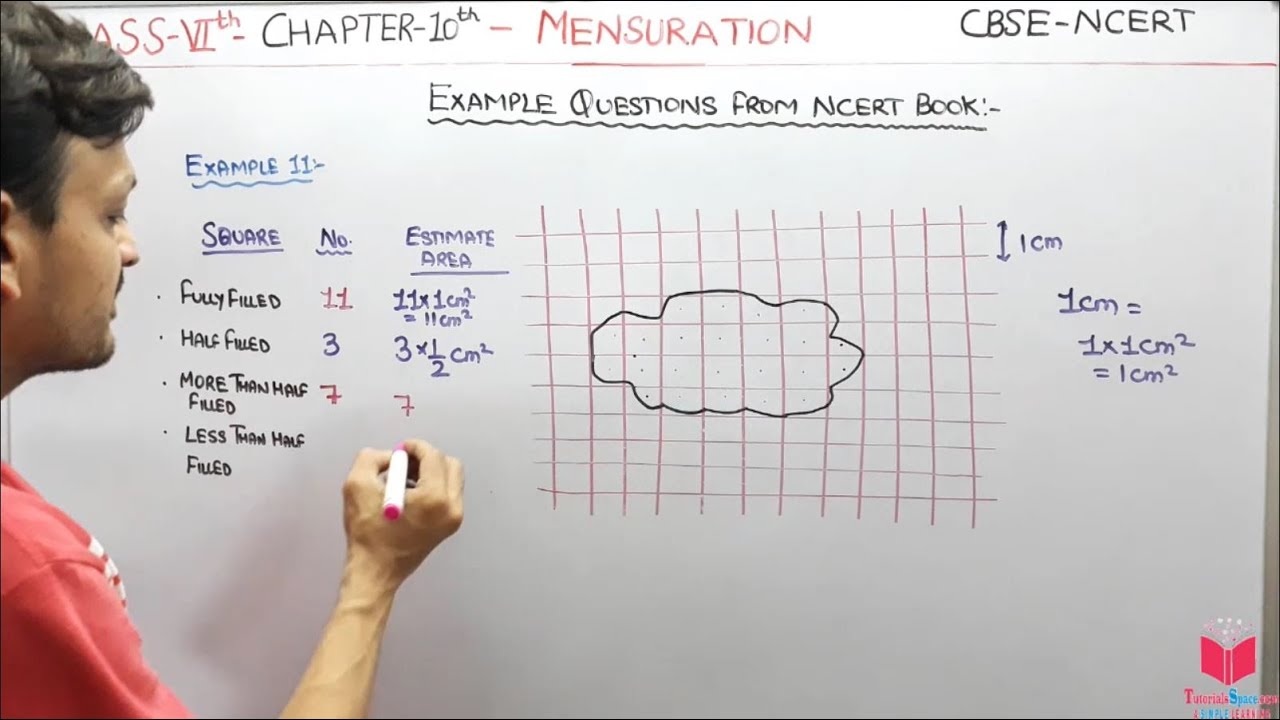 ASS-VIth- CHAPTER-10th - MENSURATION CBSE-NCERT
EXAMPLE QUESTIONS FROM NCERT BOOK:-
EXAMPLE 11:-
SQUARE No. ESTIMATE
AREA
· FULLY FILLED 11 11×1cm²
= 11cm²
· HALF FILLED 3 3×1/2 cm²
· MORE THAN HALF 7 7
FILLED
· LESS THAN HALF
FILLED
1cm
1cm =
1×1cm²
= 1cm²
TutorialsSpace.com
A SIMPLE LEARNING